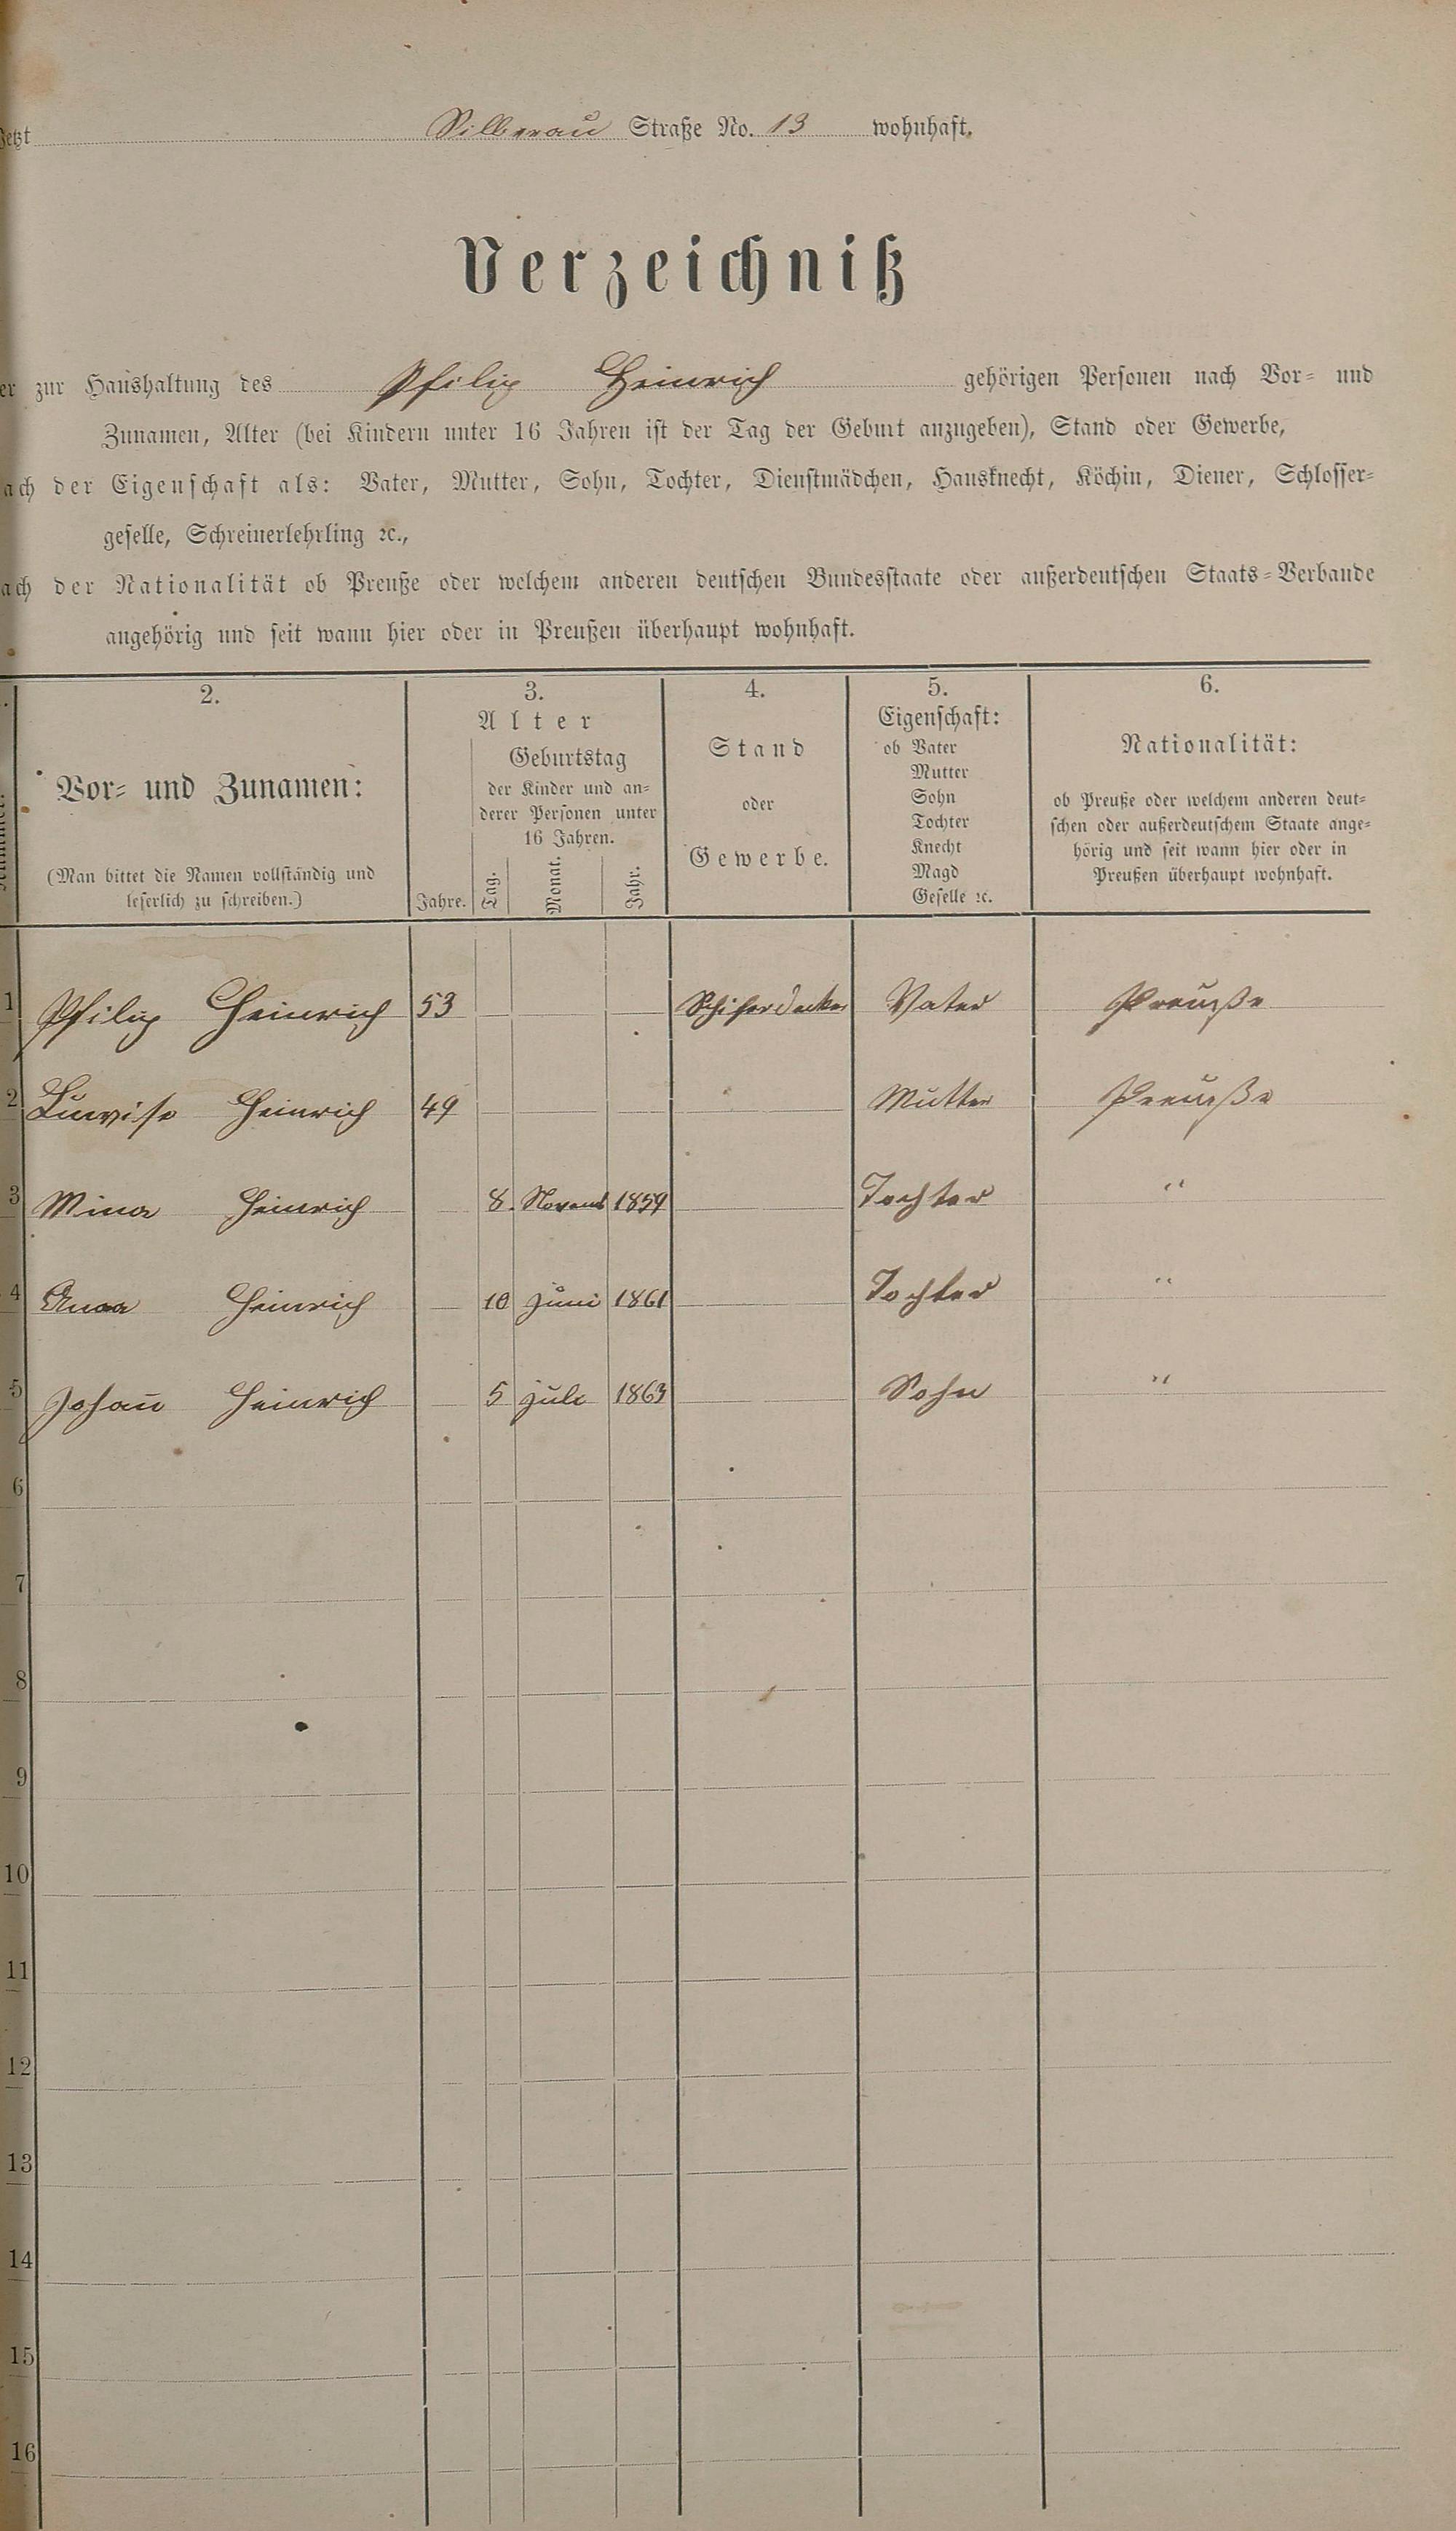 Jetzt Silberau Straße No. 13 wohnhaft.
Verzeichniß
er zur Haushaltung des Philip Heinrich gehörigen Personen nach Vor- und
Zunamen, Alter (bei Kindern unter 16 Jahren ist der Tag der Geburt anzugeben), Stand oder Gewerbe,
ach der Eigenschaft als: Vater, Mutter, Sohn, Tochter, Dienstmädchen, Hausknecht, Köchin, Diener, Schlosser-
geselle, Schreinerlehrling ꝛc.,
ach der Nationalität ob Preuße oder welchem anderen deutschen Bundesstaate oder außerdeutschen Staats-Verbande
angehörig und seit wann hier oder in Preußen überhaupt wohnhaft.
2. 3. 4. 5. 6.
Vor- und Zunamen:
(Man bittet die Namen vollständig und
leserlich zu schreiben.)
Alter
Jahre.
Geburtstag
der Kinder und an-
derer Personen unter
16 Jahren.
Tag. Monat. Jahr.
Stand
oder
Gewerbe.
Eigenschaft:
ob Vater
Mutter
Sohn
Tochter
Knecht
Magd
Geselle ꝛc.
Nationalität:
ob Preuße oder welchem anderen deut-
schen oder außerdeutschem Staate ange-
hörig und seit wann hier oder in
Preußen überhaupt wohnhaft.
1 Philip Heinrich 53 Schiferdecker Vater Preuße
2 Luwise Heinrich 49 Mutter Preuße
3 Mina Heinrich 8. Novemb 1859 Tochter "
4 Anna Heinrich 10 Juni 1861 Tochter "
5 Johan̄ Heinrich 5 Juli 1863 Sohn "
6
7
8
9
10
11
12
13
14
15
16